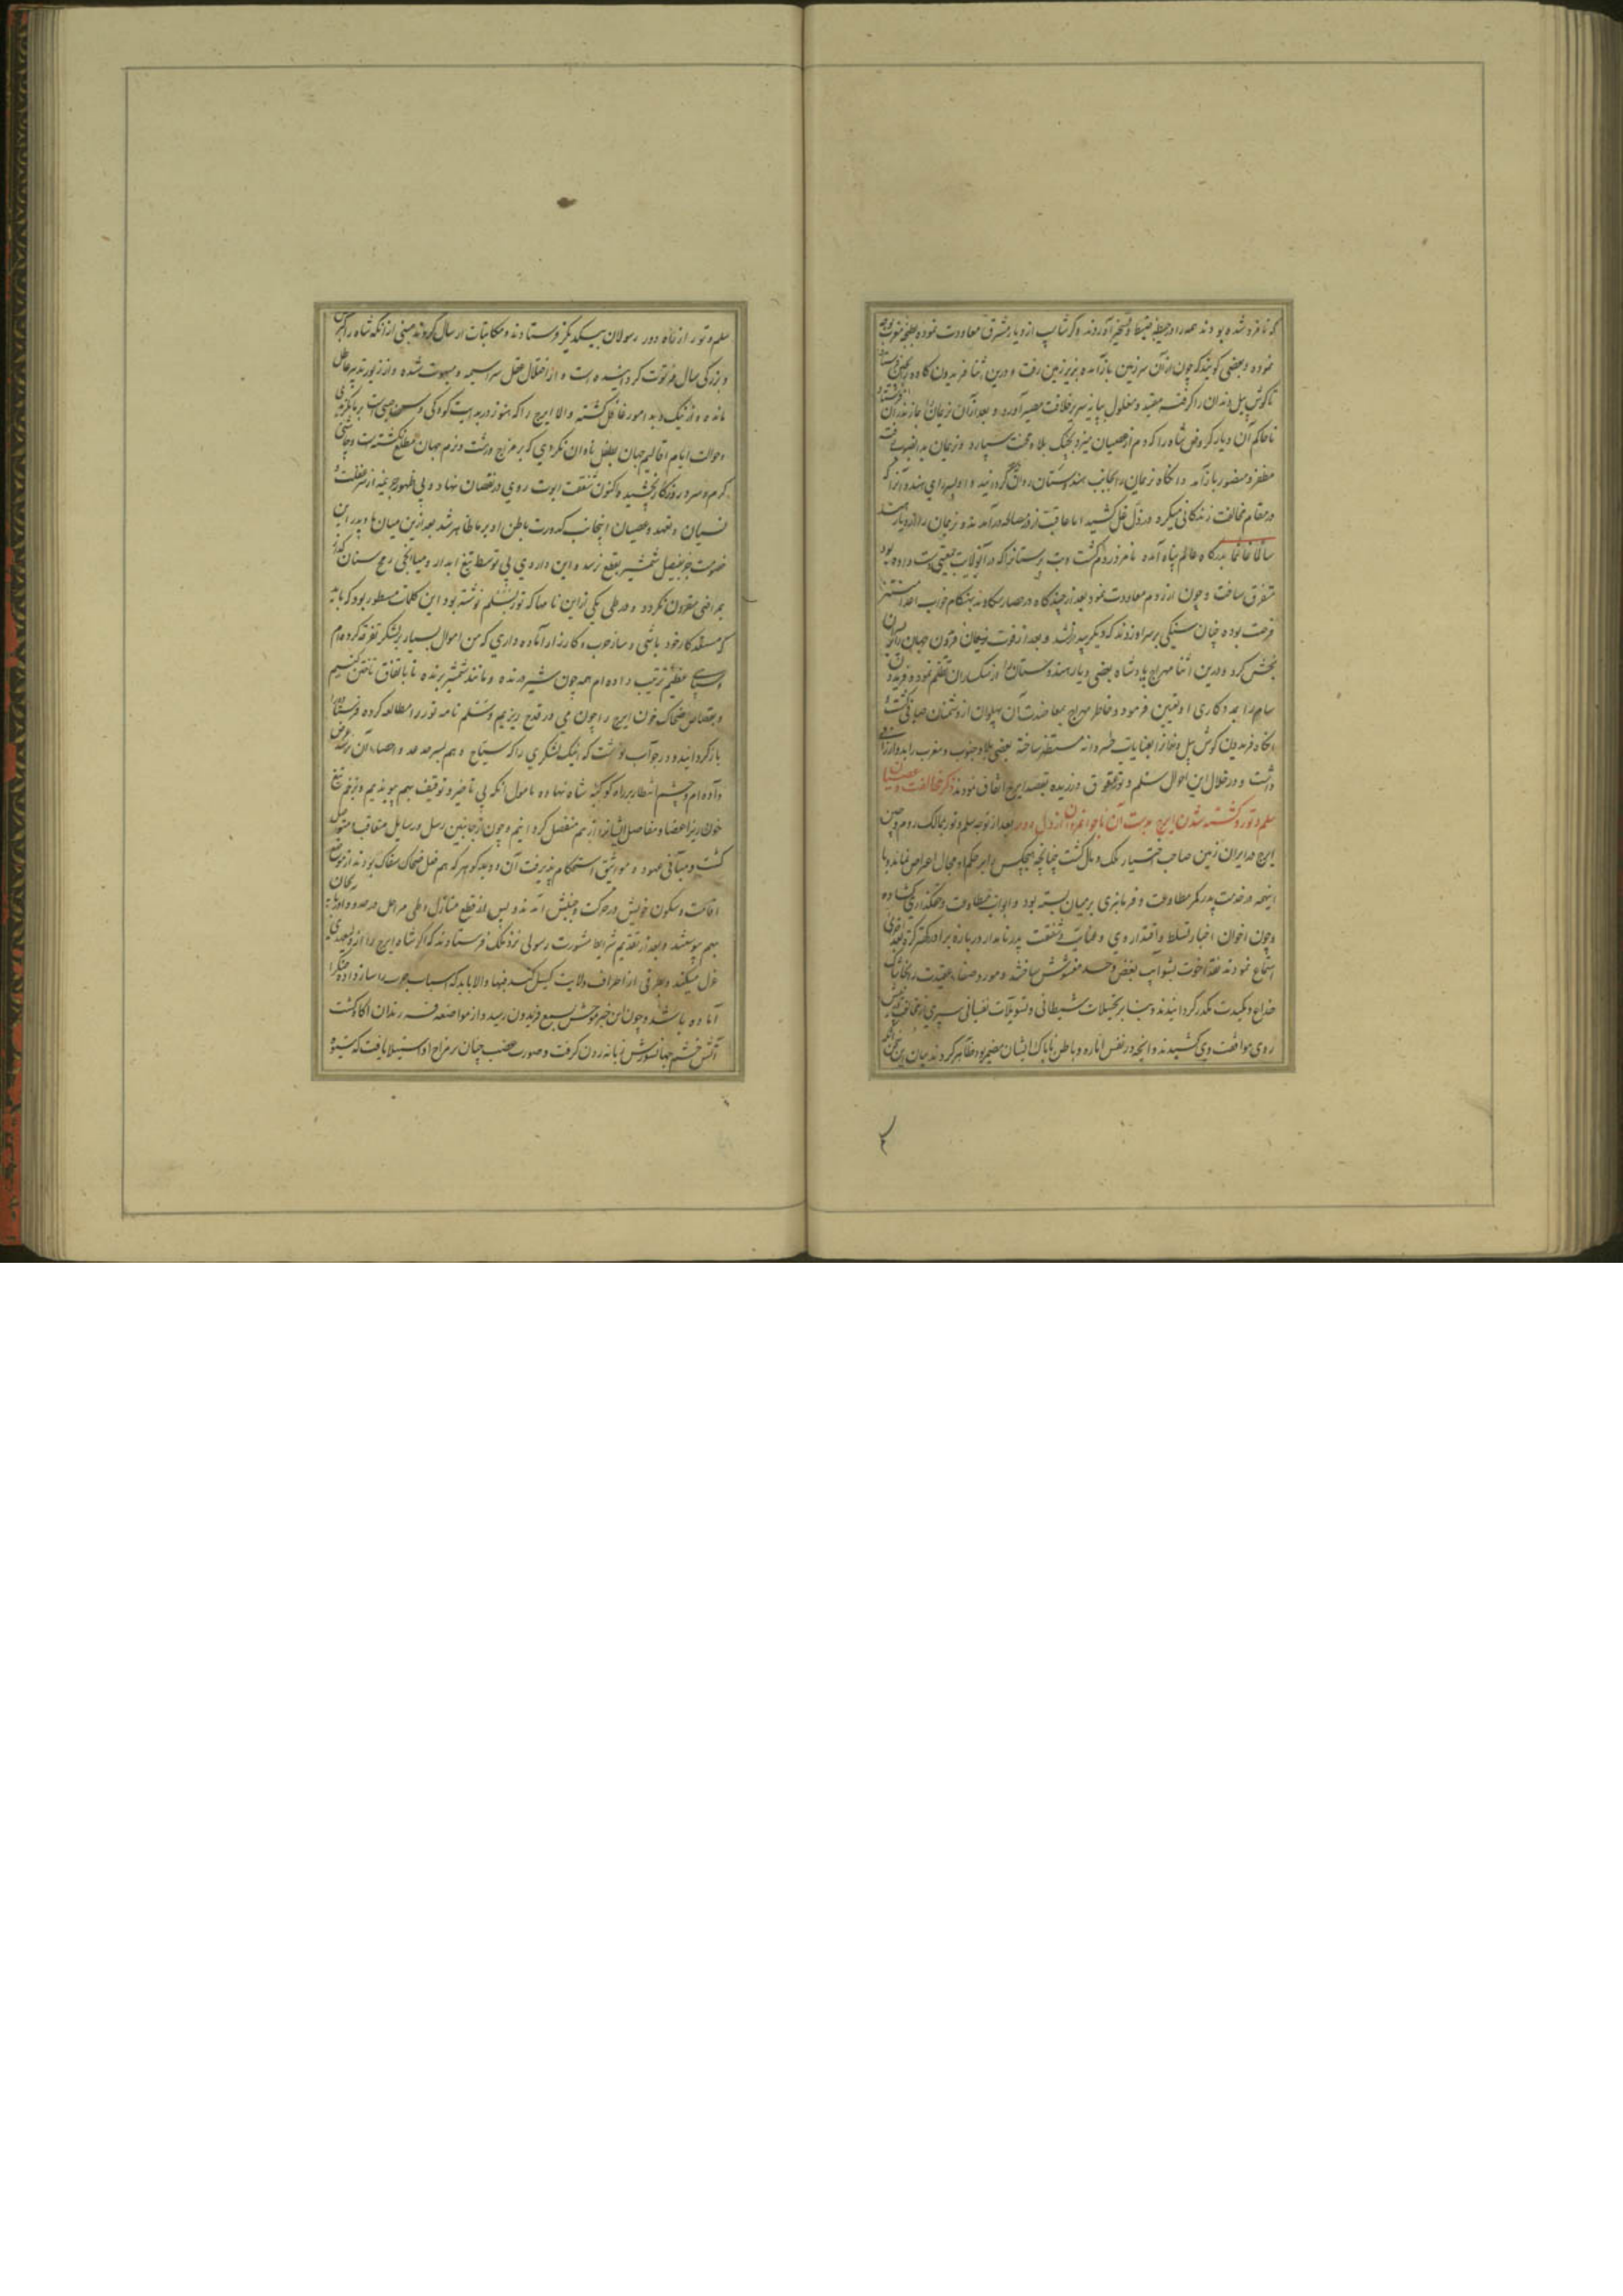 که نامزد شده بودند همه را در حیطهٔ ضبط و تسخیر آوردند و گرشاسپ از دیار مشرق معاودت نموده
نموده و بعضی گویند که چون از آن سرزمین بازآمده بزیر زمین رفت و درین اثنا فریدون کاوه را بچین
تا کوش پیل دندان را گرفته مقید و مغلول بپایه سریر خلافت مصیر آورد و بعد از آن نریمان را بمازندران
تا حاکم آن دیار کروض شاه را که دم از عصیان میزد بچنگ بلا و محنت سپارد و نریمان بدانصوب رفته
مظفر و منصور بازآمد و انگاه نریمان را بجانب هندوستان روان گردانید و
در مقام مخالفت زندگانی میکرد اما عاقبت از در مصالحه درآمدند و نریمان را از دیار هند
سالما غانما بدرگاه عالم پناه آمده نامزد روم گشت و بت پرستانرا که در آنولایت جمعیتی دست داده بود
متفرق ساخت و چون از روم معاودت نمود بعد از چندگاه در حصار سکاوند بهنگام خواب اعدا
فرصت بوده چنان سنگی بر سر او زدند که دیگر بیدار نشد و بعد از فوت نریمان فریدون جهان
بخش کرد و درین اثنا مهراج پادشاه بعضی دیار هندوستان از سکساران تظلم نمود و فریدون
سام را بمددکاری او تعیین فرمود و خاطر مهراج بمعاضدت آن پهلوان از دشمنان صافی گشت و
انگاه فریدون کوش پیل دندانرا بعنایات خسروانه مستظهر ساخته بعضی بلاد جنوب و مغرب را بدو ارزانی
داشت و در خلال این احوال سلم و تور عقوق ورزیده بقصد ایرج اتفاق نمودند ذکر مخالفت و عصیان
سلم و تور و کشته شدن ایرج بدست آن ناجوانمردان از دل دور بعد از توجه سلم و تور بممالک روم و چین
ایرج در ایران زمین صاحب اختیار ملک و مال گشت چنانچه هیچکس را بر حکم او مجال اعتراض نماند و با
اینهمه در خدمت پدر کمر مطاوعت و فرمانبری بر میان بسته بود و ابواب مطاوعت و حکمگذاری گشاده
و چون اخوان اخبار تسلط و اقتدار وی و عنایت و شفقت پدر نامدار درباره برادر کهتر
استماع نمودند عقد اخوت بشوایب بغض و حسد مغشوش ساختند و مورد صفاء عقیدت را بخاشاک
خداع و مکیدت مکدر گردانیدند و بنابر تخیلات شیطانی و تسویلات نفسانی سپر مخالفت
روی موافقت وی کشیدند و آنچه در نفس اماره و باطن ناپاک ایشان مضمر بود ظاهر کردند بیان این سخن آنکه
سلم و تور از راه دور رسولان بیکدیگر فرستادند و مکاتبات ارسال کردند مبنی از آنکه شاه را کبر
و بزرگی سال فرتوت گردانیده است و از اختلال عقل سراسیمه و مبهوت شده و از زیور تدبیر عاطل
مانده و از نیک و بد امور غافل گشته والا ایرج را که هنوز در بدایت کودکی و سن صبی است بر ما نگزیدی
و حوالت ایام اقالیم جهان بطفل نادان نکردی که بر مزاج درشت و نرم جهان مطلع نگشته است و چاشنی
گرم و سرد روزگار نچشیده و اکنون شفقت ابوت روی در نقصان نهاده و بی ظهور جریمه از سر غفلت و
نسیان و تعهد و عصیان اینجانب کدورت باطن او بر ما ظاهر شد بعد ازین میان ما و پدر این
خصومت جز بفیصل شمشیر بقطع نرسد و این داروی بی توسط تیغ آبدار و میانجی رمح سنان گذار
بمراضی مقرون نگردد و در طی یکی از این نامها که تور بسلم نوشته بود این کلمات مسطور بود که باید
که مستعد کار خود باشی و ساز حرب و کارزار آماده داری که من اموال بسیار بر لشکر تفرقه کرده‌ام
و سپاهی عظیم ترتیب داده‌ام همه چون شیر درنده و مانند شمشیر برنده تا باتفاق تاختن کنیم
و بقصاص ضحاک خون ایرج را چون می در قدح ریزیم و سلم نامه تور را مطالعه کرده فرستاده را
بازگردانید و در جواب نوشت که اینک لشکری را که سیاح وهم بسرحد عد و احصاء آن نرسد عرض
داده‌ام و چشم انتظار بر راه کوکبه شاه نهاده مامول آنکه بی تاخیر و توقیف بهم پیوندیم و بزخم تیغ
خون‌ریز اعضا و مفاصل ایشانرا از هم منفصل گردانیم و چون از جانبین رسل و رسایل متعاقب متواصل
گشت و مبانی عهود و مواثیق استحکام پذیرفت آن دو بدگوهر که هم فعل ضحاک سفاک بودند از موضع
اقامت و سکون خویش در حرکت و جنبش آمدند و پس از قطع منازل و طی مراحل در حدود آذربایجان
بهم پیوستند و بعد از تقدیم شرایط مشورت رسولی نزد ملک فرستادند که اگر شاه ایرج را از ولیعهدی
عزل میکند و بطرفی از اطراف ولایت گسیل کند فبها والا باید که اسباب حرب را ساز داده جنگ را
آماده باشد و چون این خبر موحش بسمع فریدون رسید و از مواضعه فرزندان آگاه گشت
آتش خشم جهانسوزش زبانه زدن گرفت و صورت غضب چنان بر مزاج او استیلا یافت که شیوه